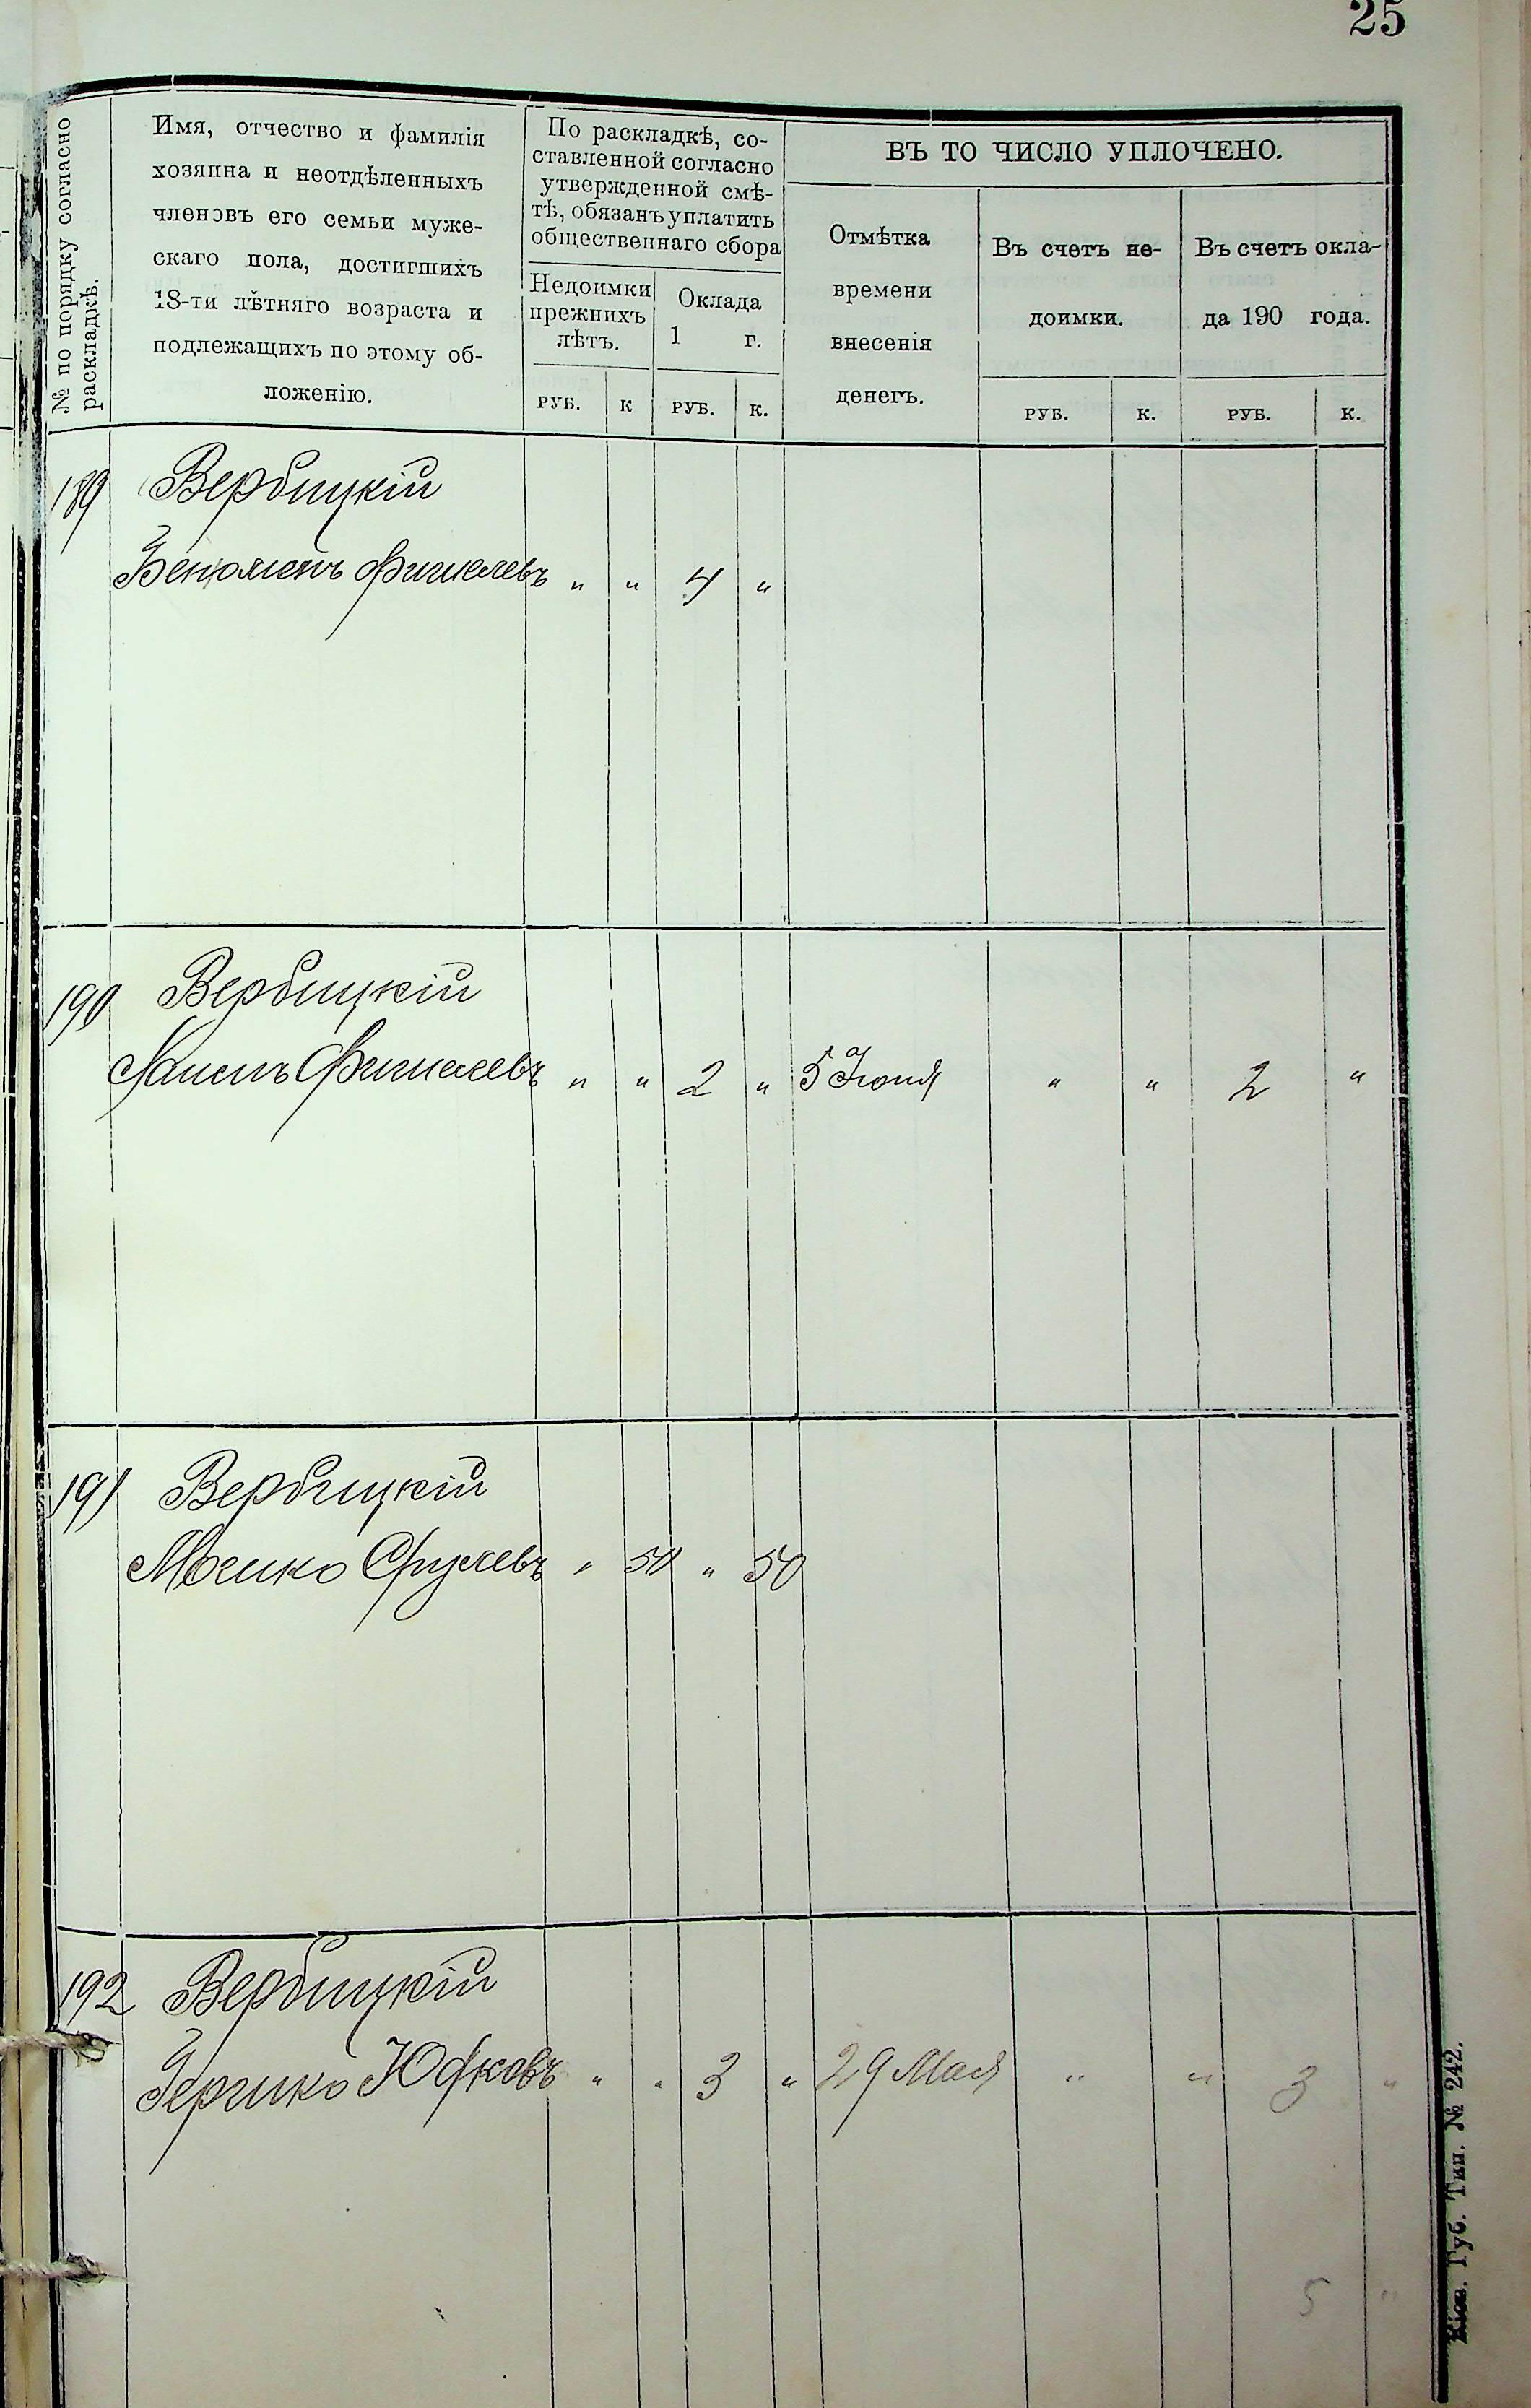 25
№ по порядку согласно
раскладкѣ.
Имя, отчество и фамилія
хозяина и неотдѣленныхъ
членовъ его семьи муже-
скаго пола, достигшихъ
18-ти лѣтняго возраста и
подлежащихъ по этому об-
ложенію.
По раскладкѣ, со-
ставленной согласно
утвержденной смѣ-
тѣ, обязанъ уплатить
общественнаго сбора
Недоимки
прежнихъ
лѣтъ.
Оклада
1 г.
РУБ. К РУБ. К.
ВЪ ТО ЧИСЛО УПЛОЧЕНО.
Отмѣтка
времени
внесенія
денегъ.
Въ счетъ не-
доимки.
РУБ. К.
Въ счетъ окла-
да 190 года.
РУБ. К.
189 Вербицкій
" " 4 "
190 Вербицкій
" " 2 " 5 Іюня " " 2 "
191 Вербицкій
Мошко Срулевъ " 50 " 50
192 Вербицкій
Гершко " " 3 " 29 Мая " " 3 "
5 "
Кіев. Губ. Тип. № 242.